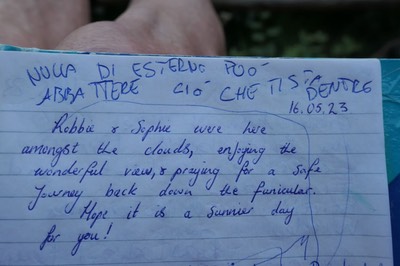 NULLA DI ESTERNO PUÓ
ABBATTERE CIÓ CHE TI SI DENTRE
16.05.23
Robbie & Sophie were here
amongst the clouds, enjoying the
wonderful view, & praying for a safe
journey back down the funicular.
Hope it is a sunnier day
for you!